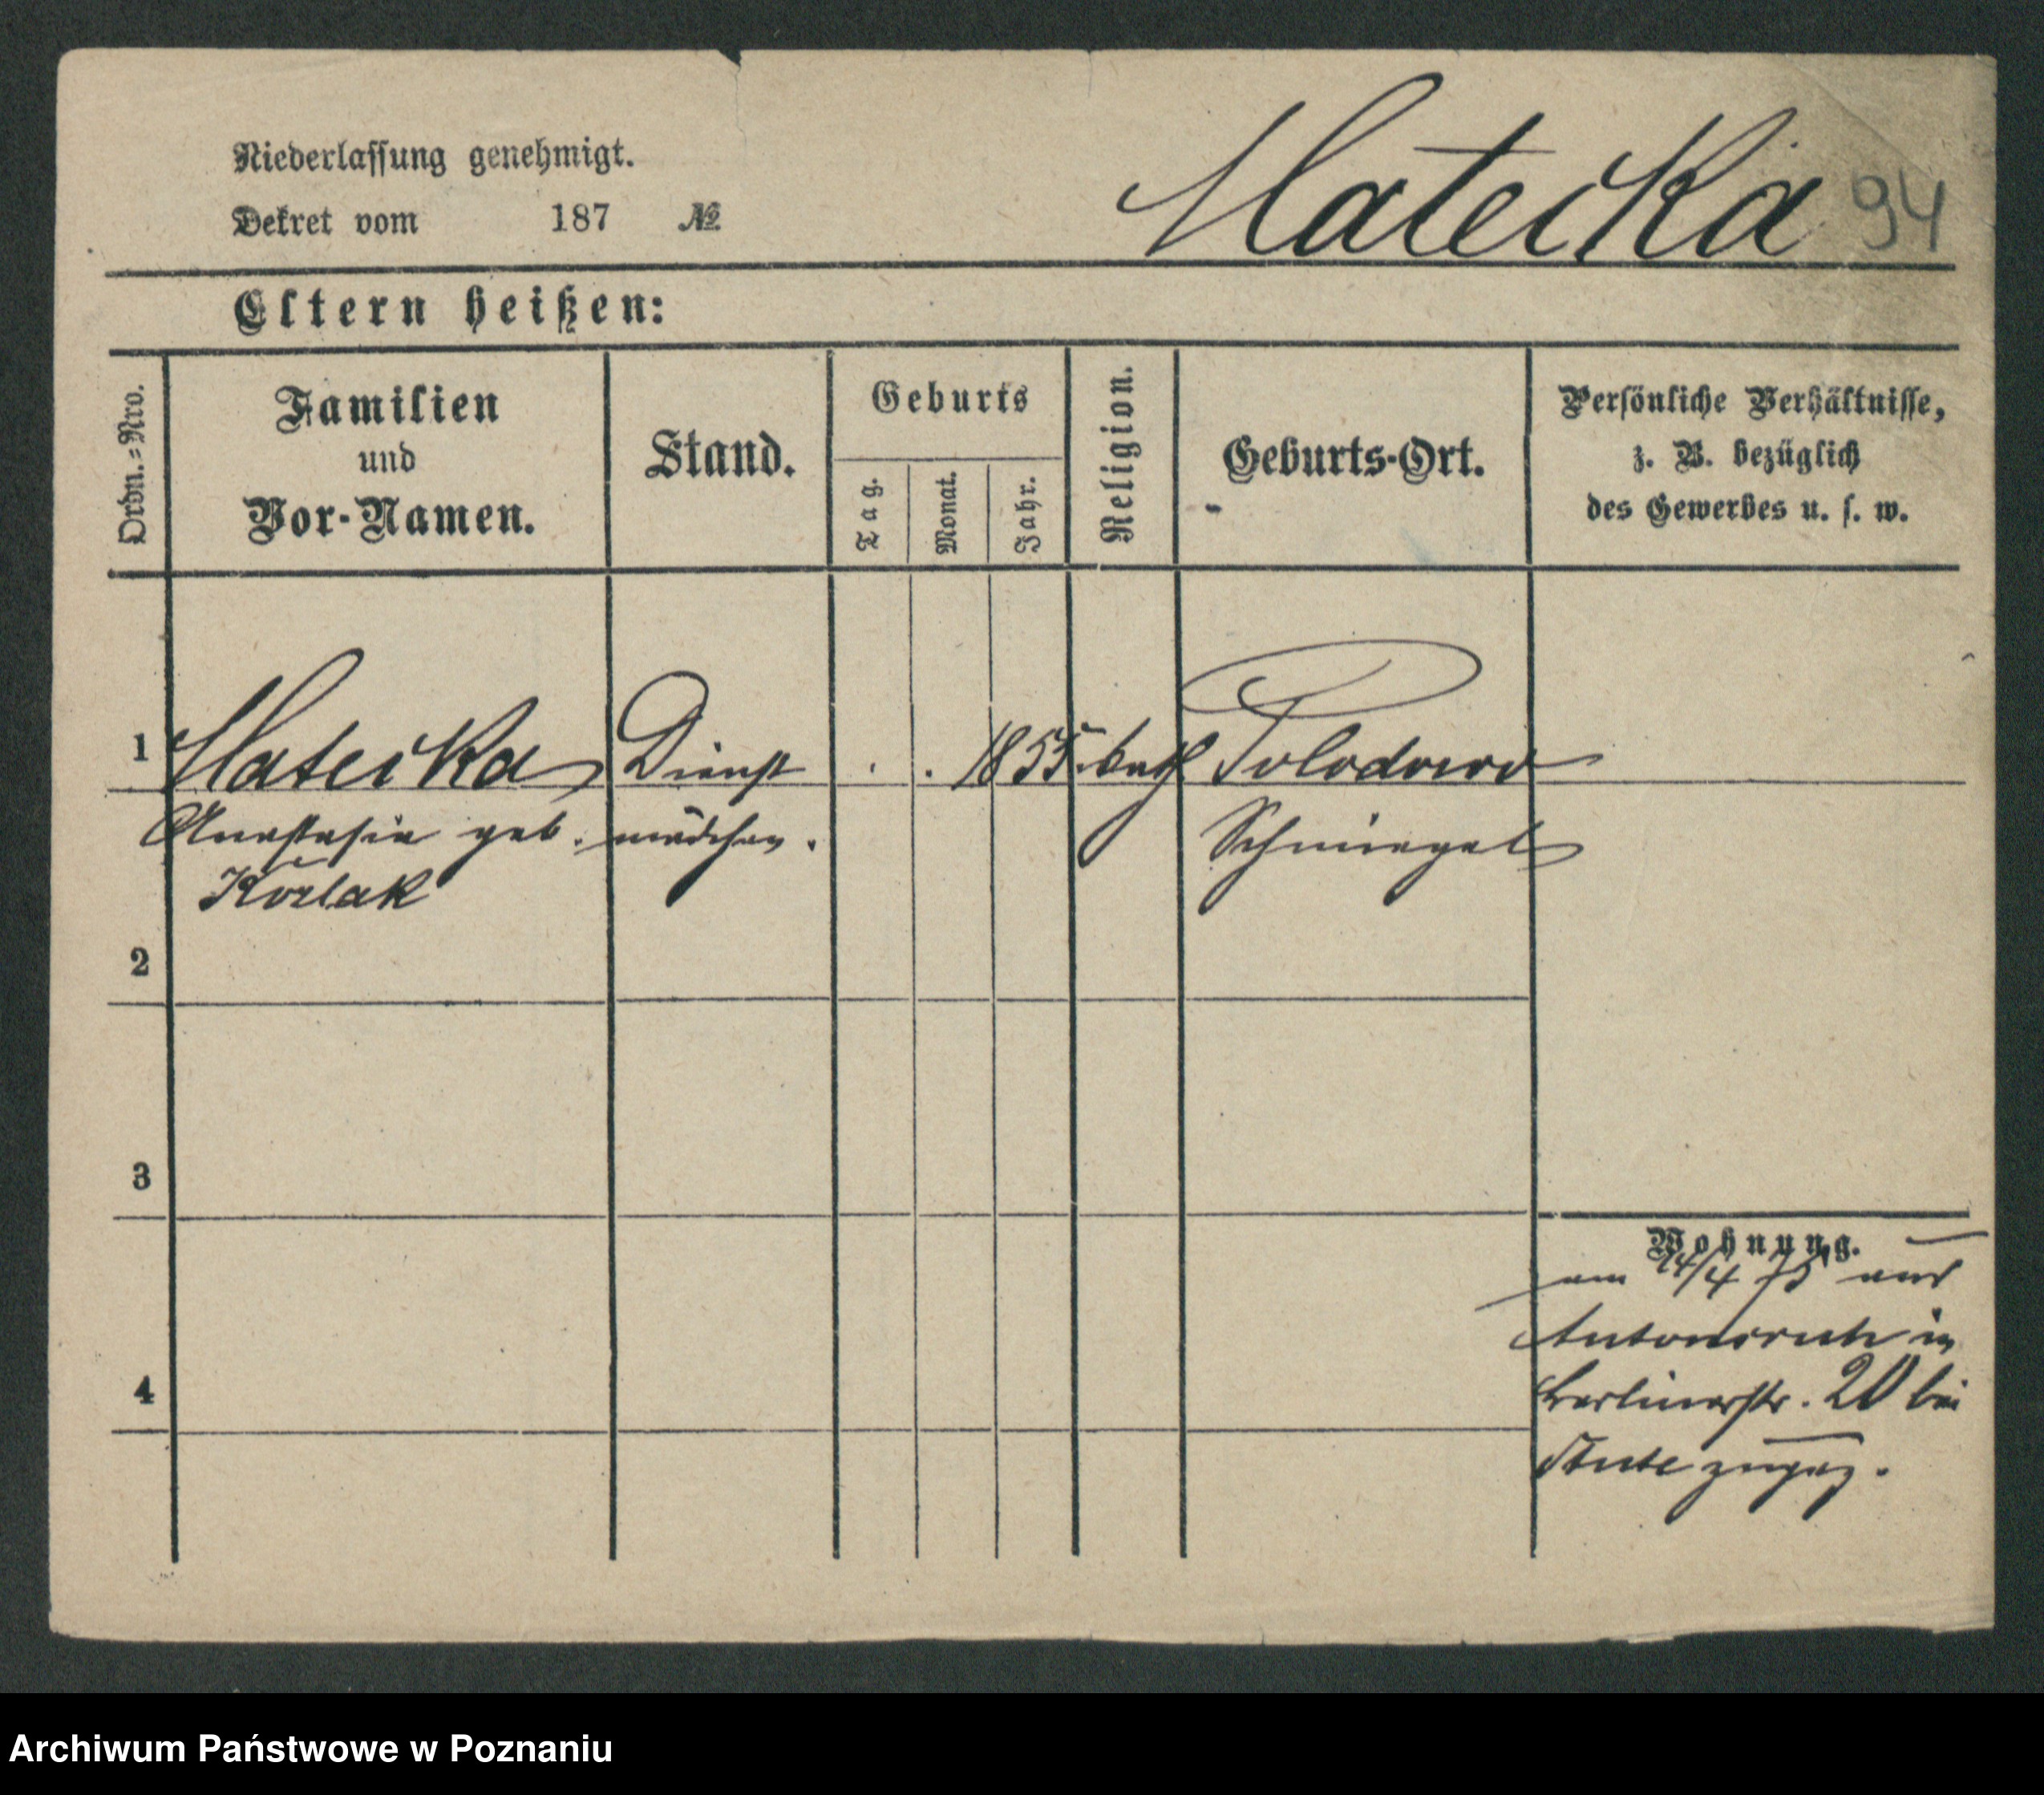 Niederlassung genehmigt.
Dekret vom 187 №
Mateika 94
Eltern heißen:
Ordn.=Nro.
Familien
und
Vor-Namen.
Stand.
Geburts
Tag.
Monat.
Jahr.
Religion.
Geburts-Ort.
Persönliche Verhältnisse,
z. B. bezüglich
des Gewerbes u. s. w.
1 Mateika Dienst . . 1855 kath
Anastasia geb. mädchen. Schmiegel
Kozlak
2
3
4
Wohnung.
am 14/4 75 aus
Antonsruh in
Berlinerstr. 20 bei
zugez.
Archiwum Państwowe w Poznaniu